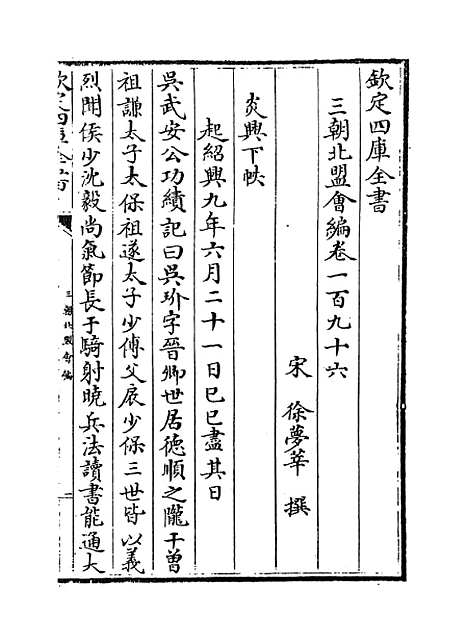 欽定四庫全書
三朝北盟會編卷一百九十六
宋 徐夢莘 撰
炎興下帙
起紹興九年六月二十一日巳巳盡其日
吳武安公功績記曰吳玠字晉卿世居德順之隴干曾
祖謙太子太保祖遂太子少傅父扆少保三世皆以義
烈聞侯少沈毅尚氣節長于騎射曉兵法讀書能通大
欽定四庫全書
三朝北盟會編
一